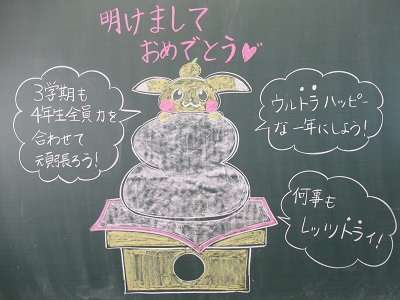 明けまして
おめでとう♡
3学期も
4年生全員力を
合わせて
頑張ろう!
ウルトラハッピー
な一年にしよう!
何事も
レッツトライ!